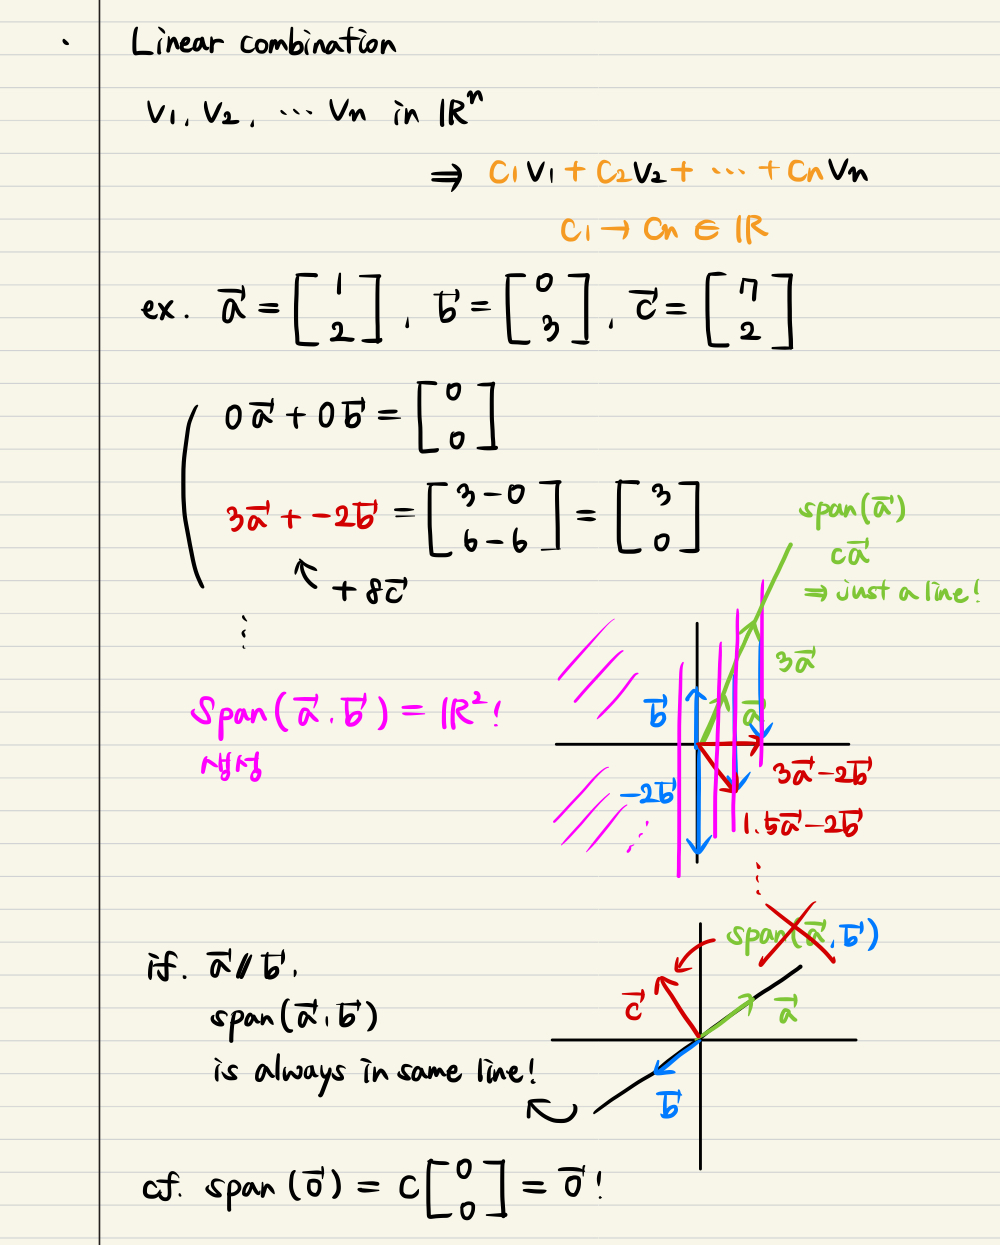 · Linear combination
V₁, V₂, ... Vn in ℝⁿ
⇒ C₁V₁ + C₂V₂ + ... + CnVn
C₁ → Cn ∈ ℝ
ex. a⃗ = [1 2], b⃗ = [0 3], c⃗ = [7 2]
0a⃗ + 0b⃗ = [0 0]
3a⃗ + -2b⃗ = [3-0 6-6] = [3 0]
↖ + 8c⃗
⋮
span(a⃗)
ca⃗
⇒ just a line!
3a⃗
Span(a⃗, b⃗) = ℝ²!
생성
b⃗
a⃗
-2b⃗
3a⃗-2b⃗
1.5a⃗-2b⃗
⋮
span(a⃗, b⃗)
if. a⃗ // b⃗,
span(a⃗, b⃗)
is always in same line!
c⃗
a⃗
b⃗
cf. span(o⃗) = C[0 0] = o⃗!